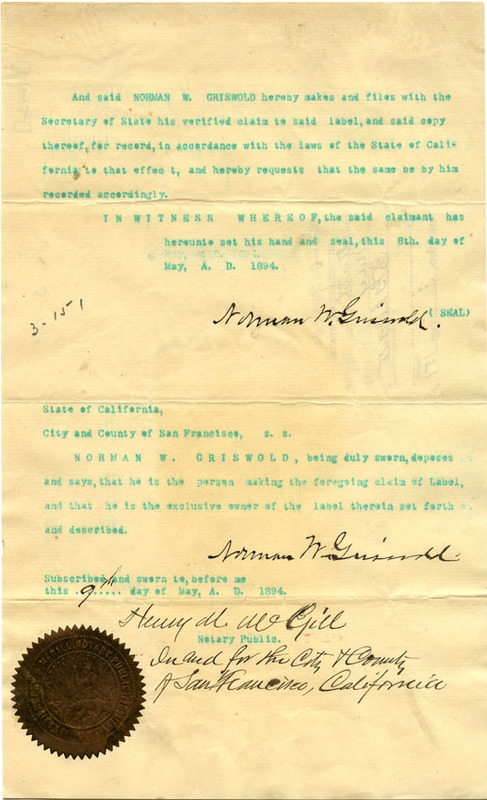 And said NORMAN W. GRISWOLD hereby makes and files with the
Secretary of State his verified claim to said label, and said copy
thereof, for record, in accordance with the laws of the State of Cali-
fornia to that effect, and hereby requests that the same be by him
recorded accordingly.
IN WITNESS WHEREOF, the said claimant has
hereunto set his hand and seal, this 8th. day of
May, A. D. 1894.
Norman W. Griswold. (SEAL)
3-151
State of California,
City and County of San Francisco, s. s.
NORMAN W. GRISWOLD, being duly sworn, deposes
and says, that he is the person making the foregoing claim of Label,
and that he is the exclusive owner of the label therein set forth
and described.
Norman W. Griswold.
Subscribed and sworn to, before me
this 9th day of May, A. D. 1894.
Henry M. McGill
Notary Public.
In and for the City & County
of San Francisco, California